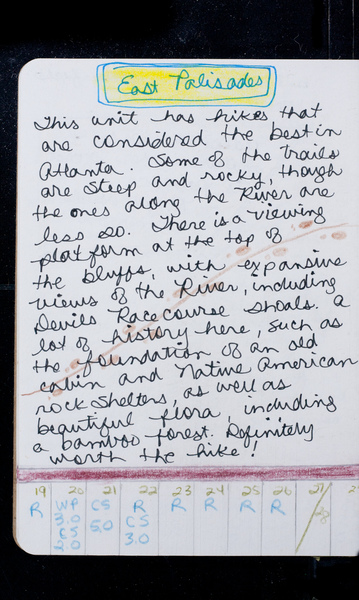 East Palisades
This unit has hikes that
are considered the best in
Atlanta. Some of the trails
are steep and rocky, though
the ones along the River are
less so. There is a viewing
platform at the top of
the bluffs, with expansive
views of the River, including
Devils Race course Shoals. a
lot of history here, such as
the foundation of an old
cabin and Native American
rock shelters, as well as
beautiful flora, including
a bamboo forest. Definitely
worth the hike!
19 20 21 22 23 24 25 26 27
R WP CS R R R R R
3.0 5.0 CS
CS 3.0
2.0